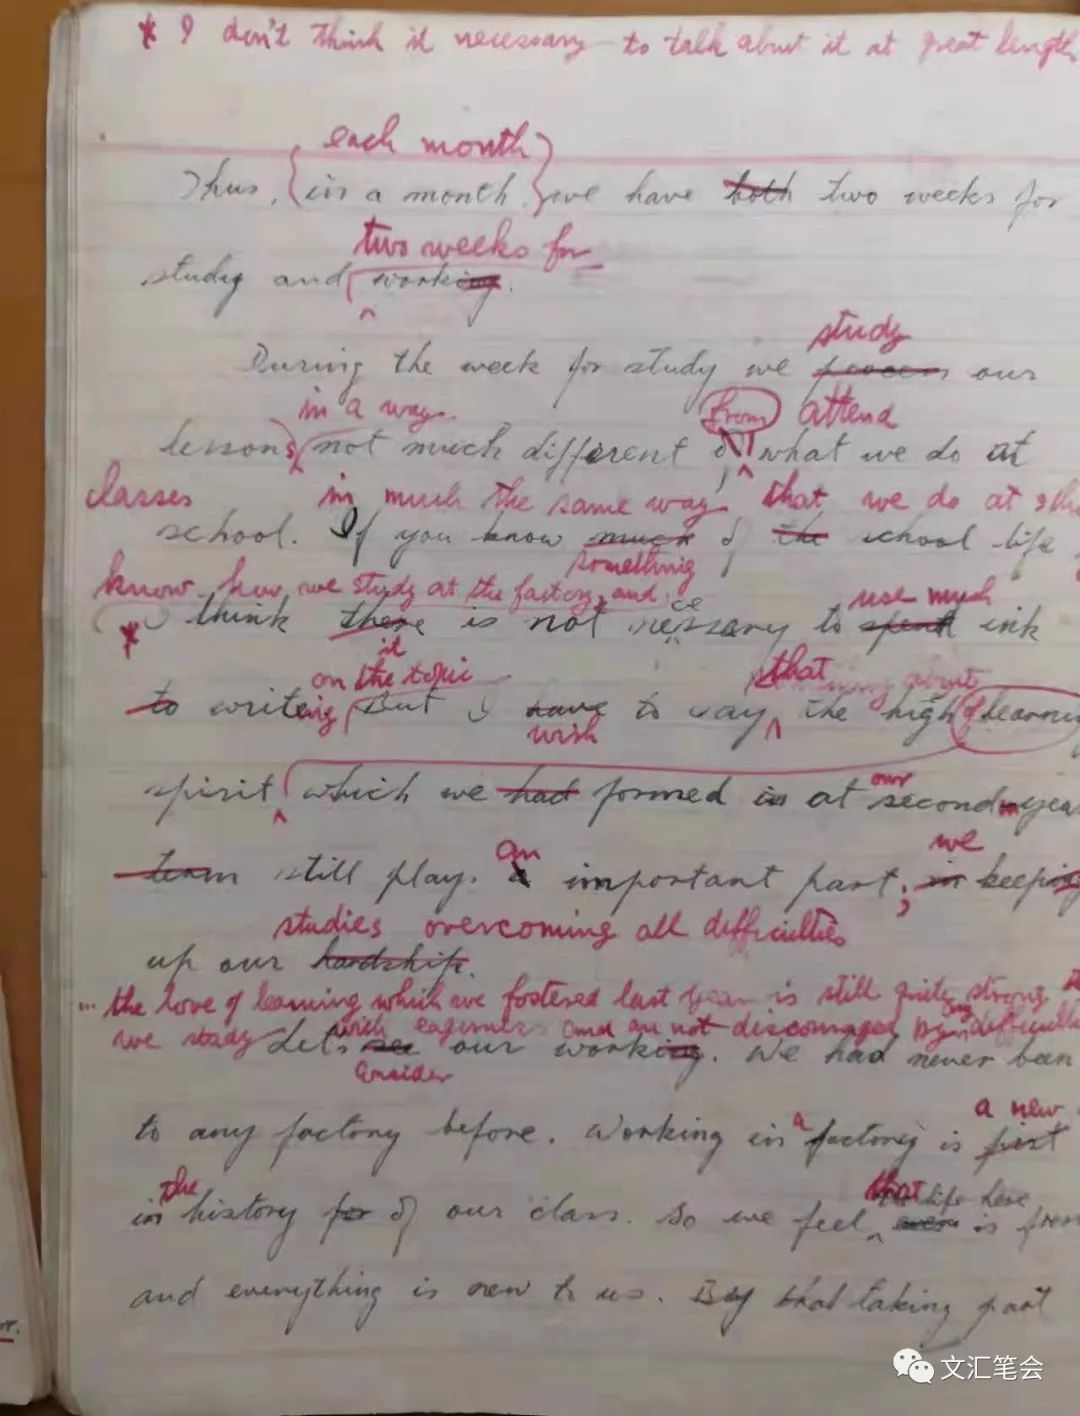 * I don't think it necessary to talk about it at great length
each month
Thus, (in a month) we have both two weeks for
two weeks for
study and working.
study
During the week for study we process our
in a way from attend
lessons not much different of what we do at
classes in much the same way that we do at
school. If you know much of the school life
something
know how we study at the factory, and
use much
I think there is not necessary to spent ink
it
on the topic that
to writeing But I have to say the high of learning
wish
our
spirit which we had formed in at second year
an we
team still plays a important part, in keeping
studies overcoming all difficulties
up our hardship.
... the love of learning which we fostered last year is still quite strong
we study with eagerness and are not discouraged by any difficulties
Let's see our working. We had never been
Consider
a new
to any factory before. Working in a factory is first
the that life here
in history for of our class. So we feel even is fresh
and everything is new to us. By that taking part
文汇笔会